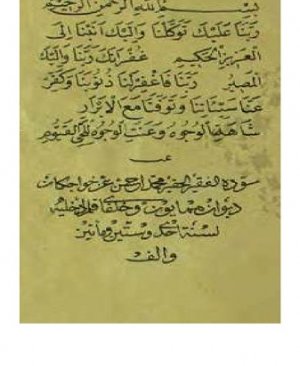 بسم الله الرحمن الرحيم
ربنا عليك توكلنا واليك انبنا الى
العزيز الحكيم غفرانك ربنا واليك
المصير ربنا فاغفر لنا ذنوبنا وكفر
عنا سيئاتنا وتوفنا مع الابرار
شاهت الوجوه وعنت الوجوه للحي القيوم
سوده الفقير الحقير محمد من خواجكان
ديوان همايون
لسنة احدى وستين ومأتين
والف